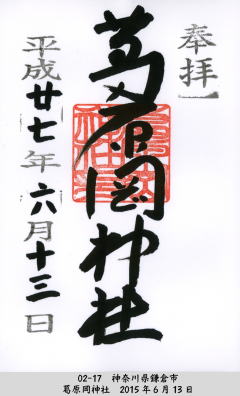 奉拝
葛原岡神社
平成廿七年六月十三日
02-17 神奈川県鎌倉市
葛原岡神社 2015年6月13日